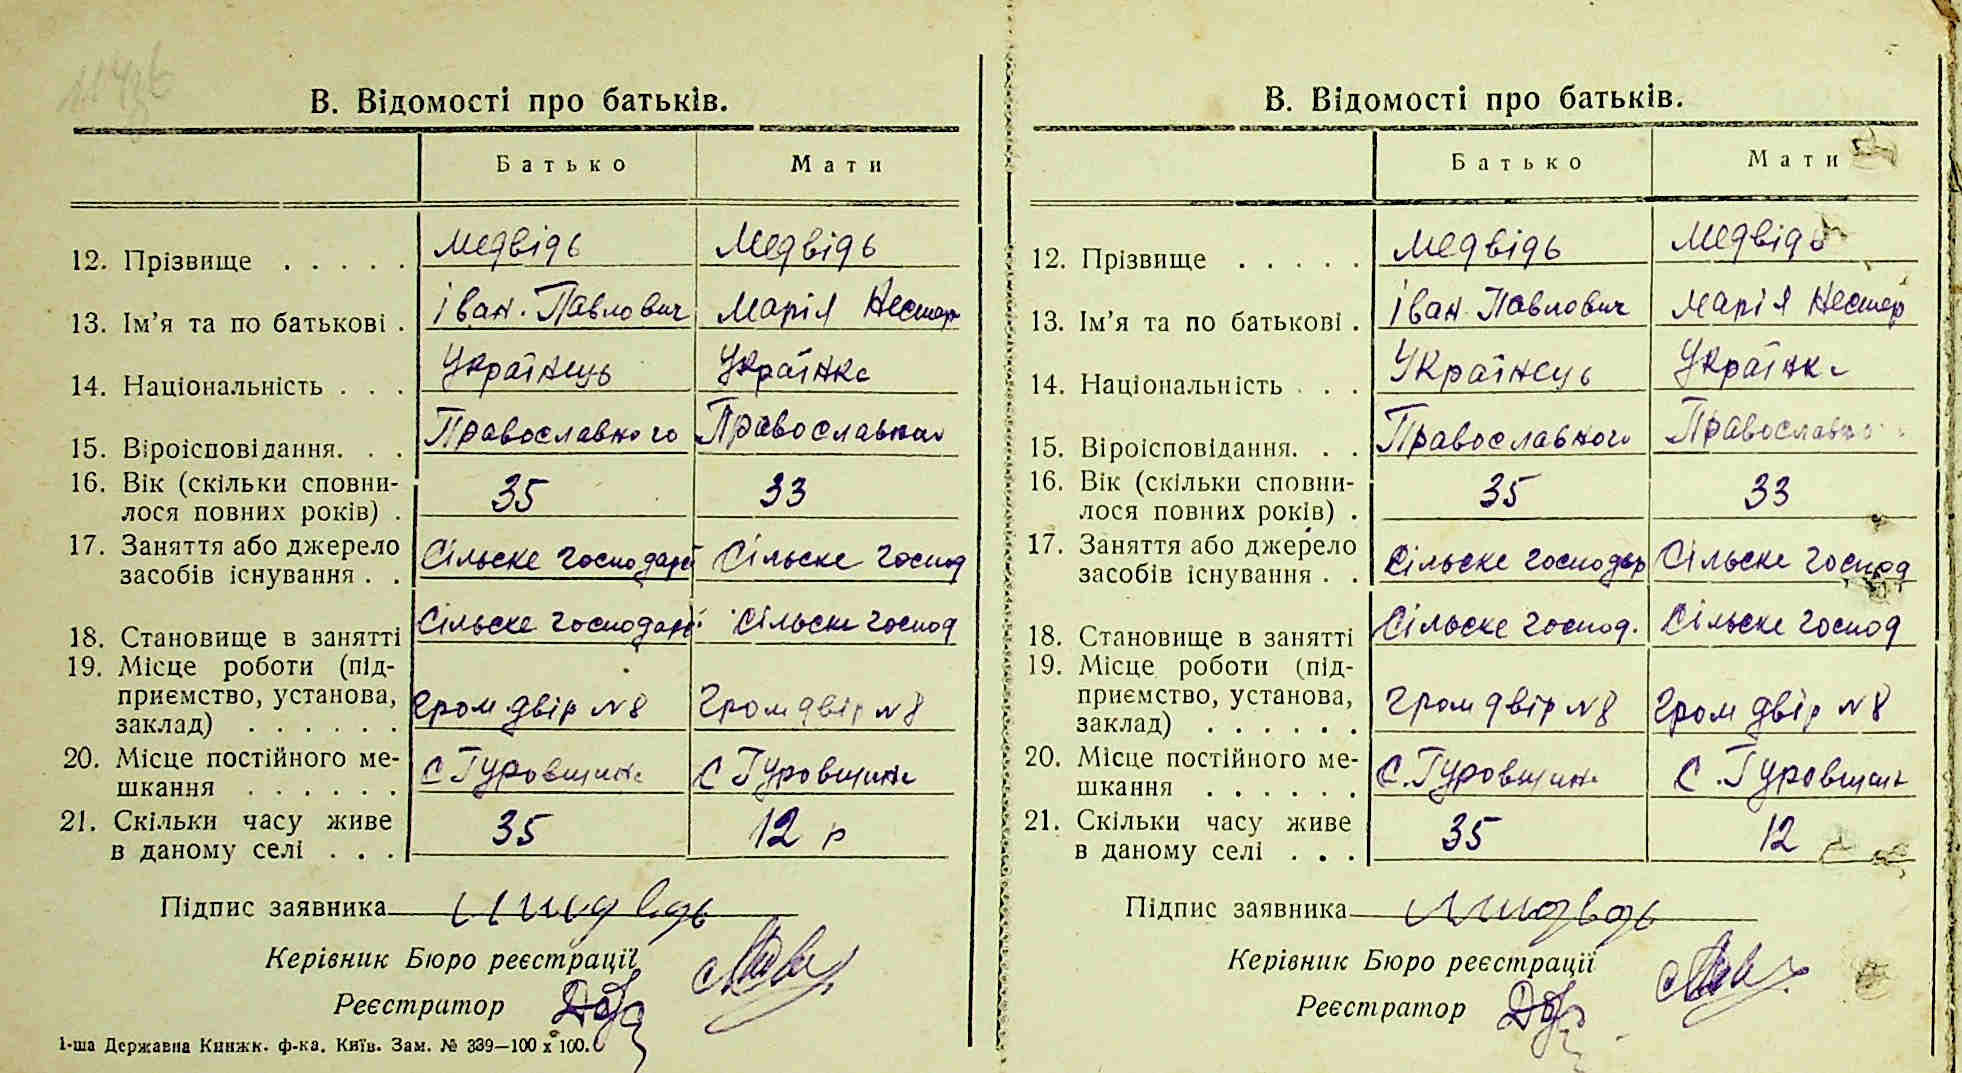 В. Відомості про батьків.
Батько Мати
12. Прізвище . . . . . Медвідь Медвідь
13. Ім'я та по батькові . Іван. Павлович Марія Нестер
14. Національність . . . Українець Українка
15. Віроісповідання. . . Православного Православная
16. Вік (скільки сповни-
лося повних років) . 35 33
17. Заняття або джерело
засобів існування . . Сільске господарс Сільске господ
18. Становище в занятті Сільске господарс Сільске господ
19. Місце роботи (під-
приємство, установа,
заклад) . . . . . . Гром двір №8 Гром двір №8
20. Місце постійного ме-
шкання . . . . . . С Гуровщина С Гуровщина
21. Скільки часу живе
в даному селі . . . 35 12 р
Підпис заявника Мидведь
Керівник Бюро реєстрації
Реєстратор
1-ша Державна Книжк. ф-ка. Київ. Зам. № 339—100 x 100.
В. Відомості про батьків.
Батько Мати
12. Прізвище . . . . . Медвідь Медвідь
13. Ім'я та по батькові . Іван Павлович Марія Нестер
14. Національність . . . Українець Українка
15. Віроісповідання. . . Православного Православно
16. Вік (скільки сповни-
лося повних років) . 35 33
17. Заняття або джерело
засобів існування . . Сільске господар Сільске господ
18. Становище в занятті Сільске господ. Сільске господ
19. Місце роботи (під-
приємство, установа,
заклад) . . . . . . Гром двір №8 Гром двір №8
20. Місце постійного ме-
шкання . . . . . . С. Гуровщина С. Гуровщина
21. Скільки часу живе
в даному селі . . . 35 12
Підпис заявника Мидведь
Керівник Бюро реєстрації
Реєстратор